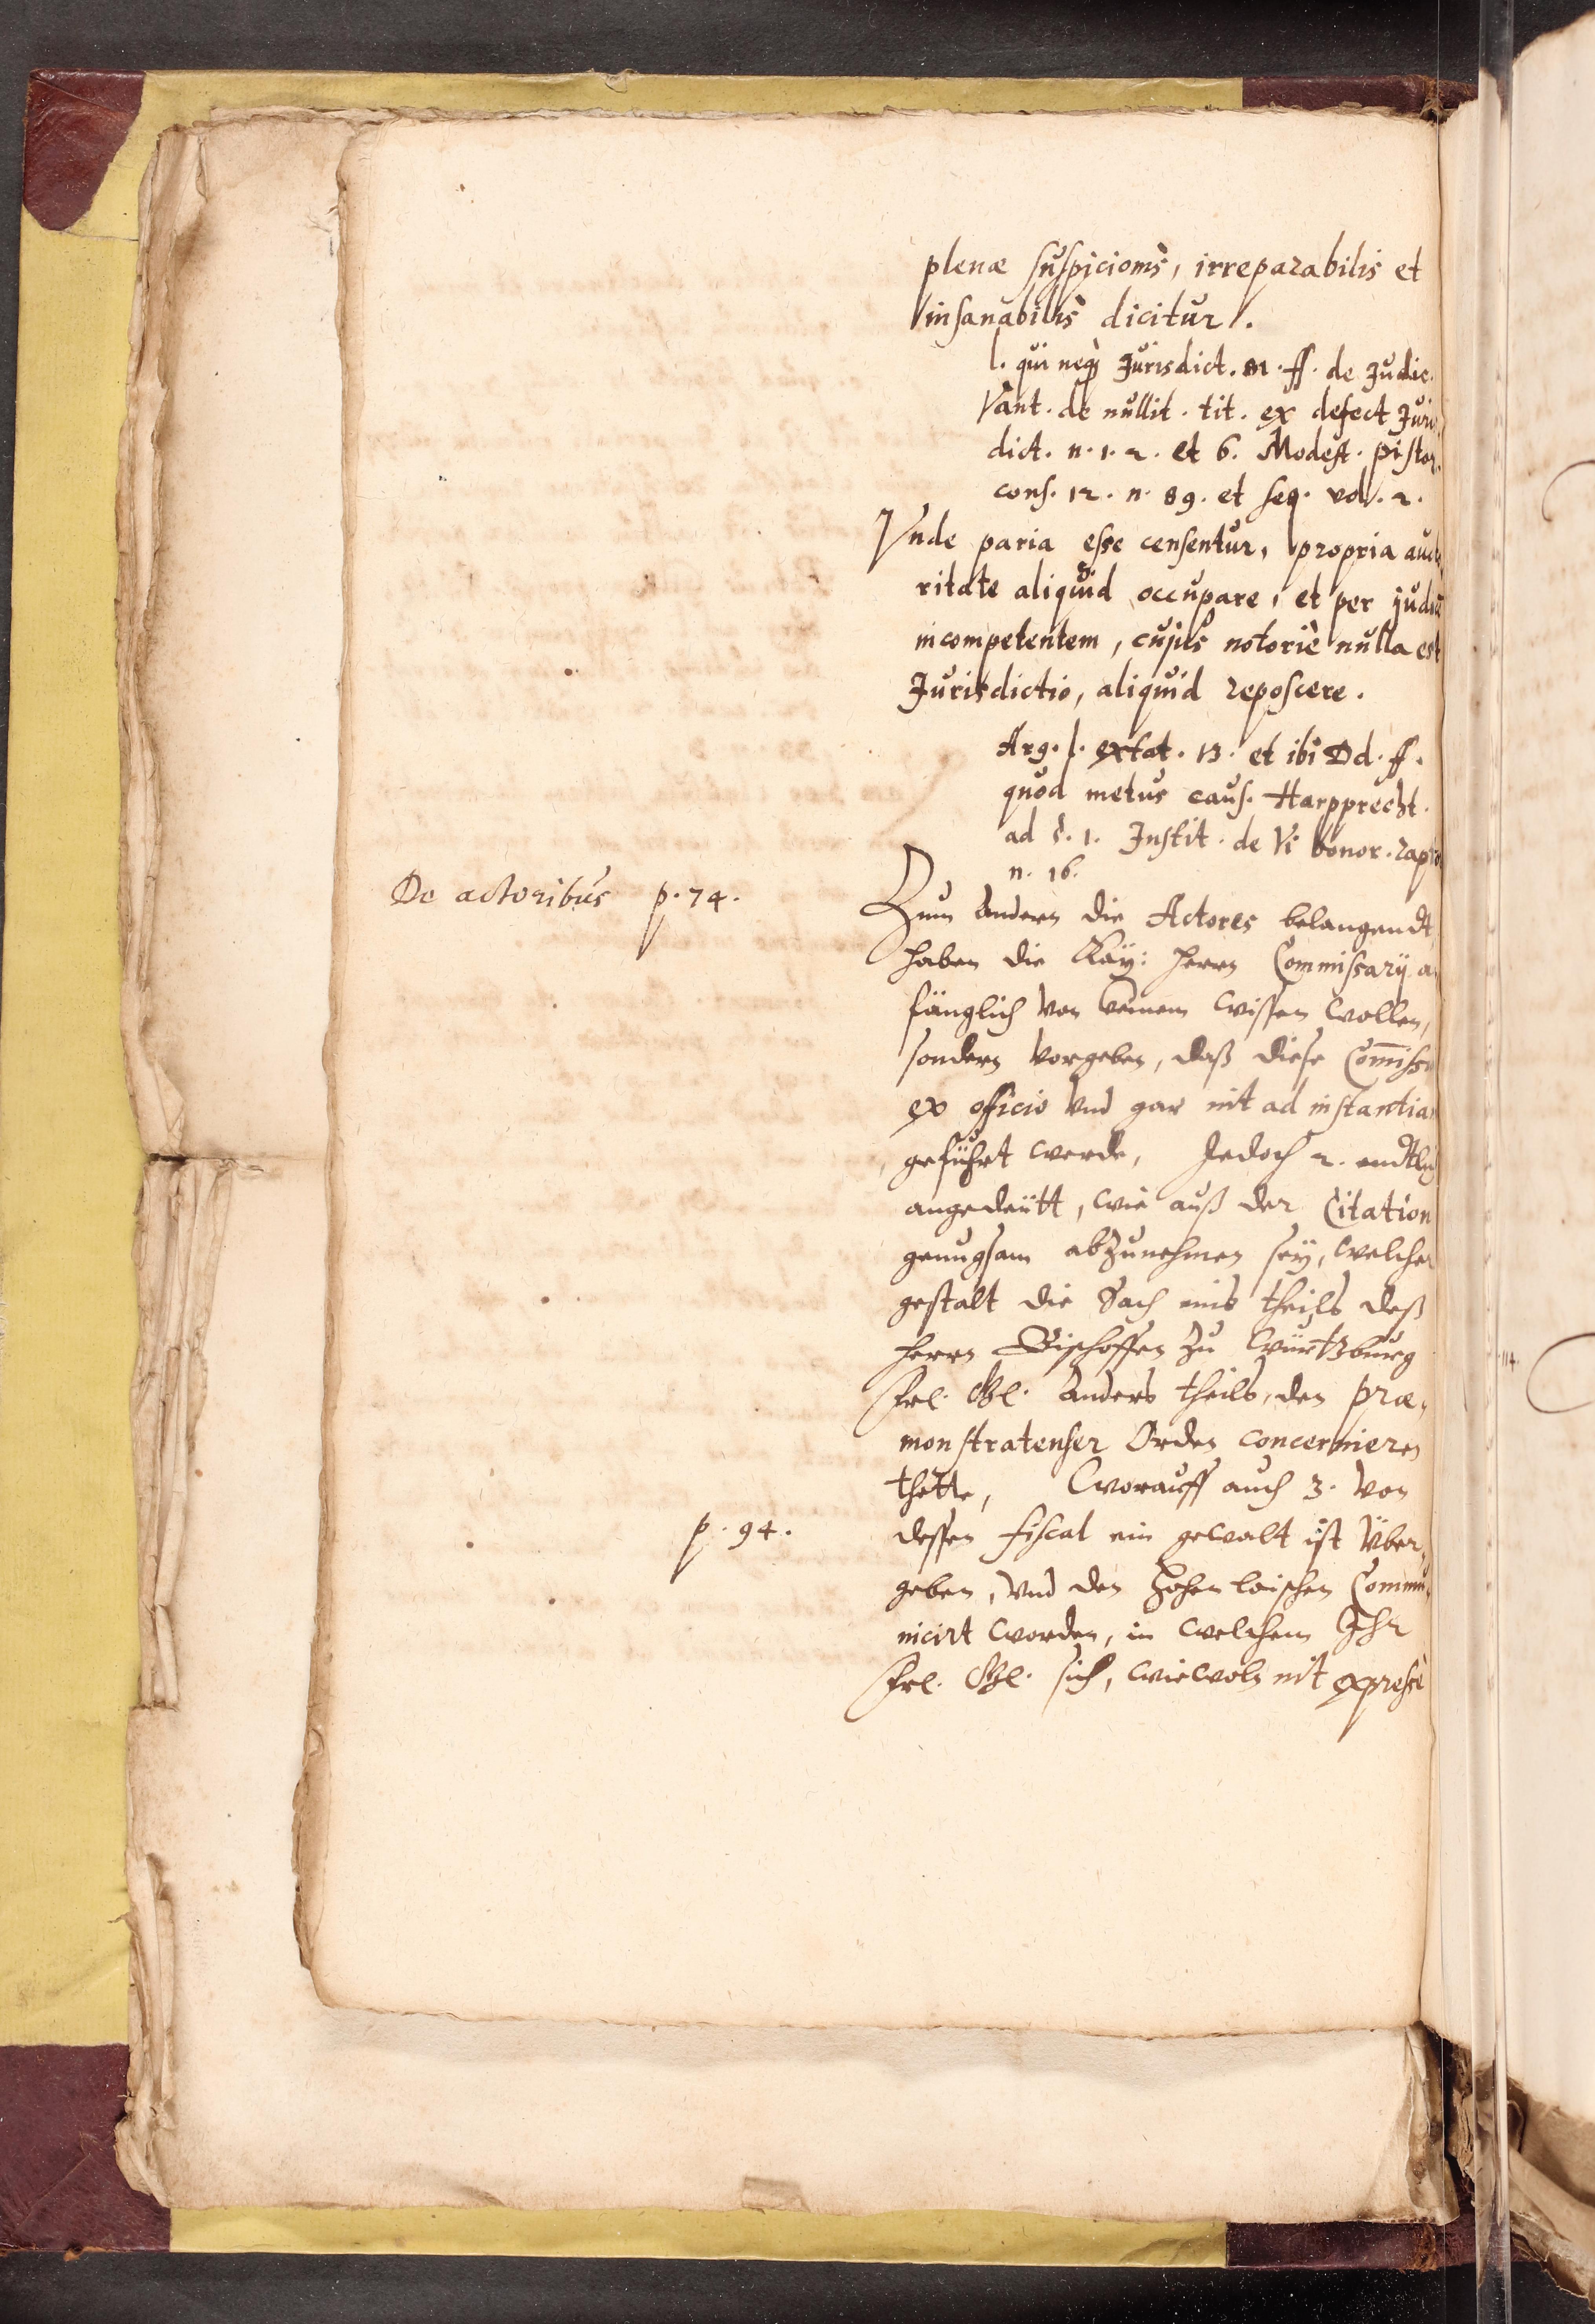 plenæ suspicionis, irreparabilis et
insanabilis dicitur.
l. qui neq Jurisdict. 81. ff. de Judic.
Vant. de nullit. tit. ex defect Juris
dict. n. 1. 2. et 6. Modest. pistor.
cons. 12. n. 89. et seq. vol. 2.
Vnde paria esse censentur, propria aucto
ritate aliquid occupare, et per judicē
incompetentem, cujus notoriè nulla est
Jurisdictio, aliquid reposcere.
Arg. l. extat. 13. et ibi Dd. ff.
quod metus caus. Harpprecht.
ad §. 1. Instit. de Vi bonor. rapt
n. 16.
De actoribus p. 74.
Zum Andern die Actores belangendt,
haben die Kay: Herrn Commissarij an
fänglich von keinem wissen wollen,
sondern vorgeben, daß diese Com̄iss
ex officio vnd gar nit ad instantiam
geführt werde, Jedoch 2. endtlich
angedeütt, wie auß der Citation
genugsam abzunehmen sey, welcher
gestalt die Sach eins theils deß
Herrn Bischoffen zu Würtzburg
Frl. Gl. Anders theils, den præ,
monstratenser Orden concernieren
thette, Worauff auch 3. von
p. 94.
dessen fiscal ein gewalt ist Vber,
geben, vnd den Hohenloischen Commu,
nicirt worden, in welchem Ihr
Frl. Gl. sich, wiewoln nit expressè